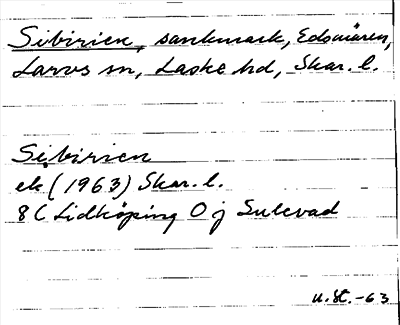 Sibirien, sankmark, Edsvären,
Larvs sn, Laske hd, Skar. l.
Sibirien
ek (1963) Skar. l.
8C Lidköping O j Sulevad
u. St. -63